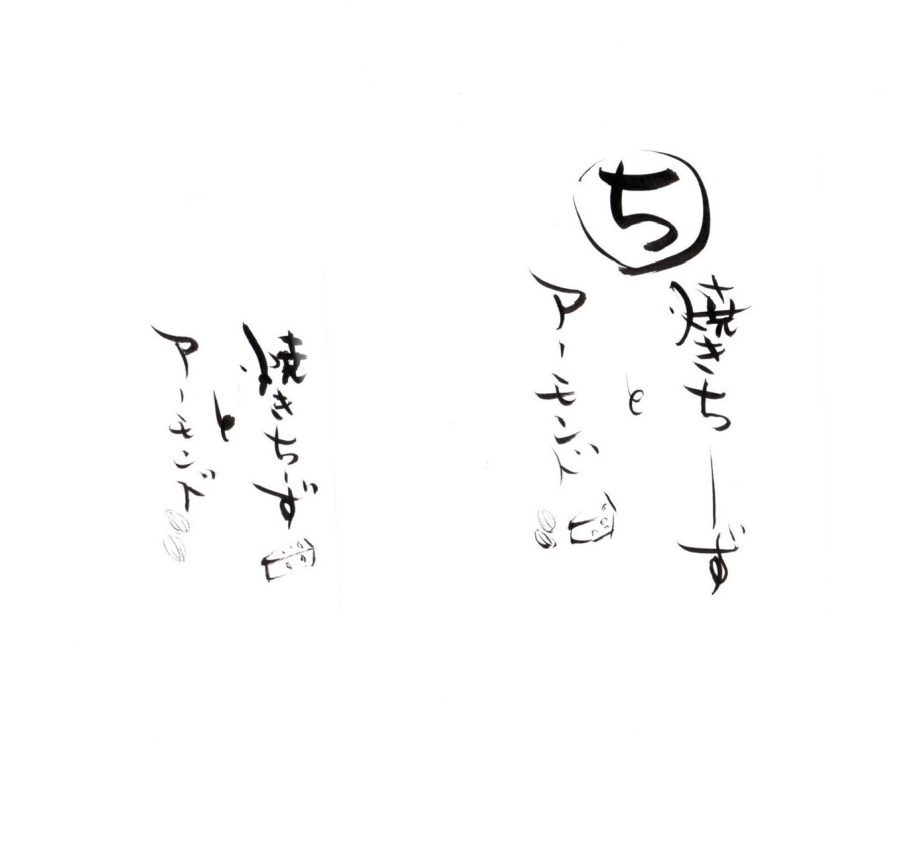 ち
焼きちーず
と
アーモンド
焼きちーず
と
アーモンド